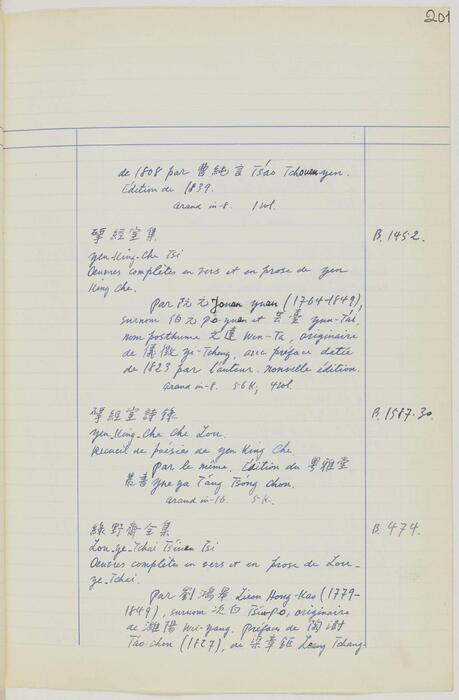 201
de 1808 par 曹純言 Ts'ao Tchouen-yen.
Edition de 1839.
Grand in-8. 1 vol.
揅經室集 B. 1452.
Yen-King-Che Tsi
Oeuvres complètes en vers et en prose de Yen
King Che.
Par 阮元 Jouan Yuan (1764-1849),
surnom 伯元 Po-yuen et 芸臺 Yun-T'ai,
nom posthume 文達 Wen-Ta, originaire
de 儀徵 Yi-Tcheng, avec préface datée
de 1823 par l'auteur. nouvelle édition.
Grand in-8. 56 K, 4 vol.
揅經室詩錄 B. 1587-30
Yen-King-Che Che Lou.
Recueil de poésies de Yen King Che.
Par le même. Edition du 粤雅堂
叢書 Yue ya T'ang Ts'ong chou.
Grand in-16. 5 K.
綠野齋全集 B. 474.
Lou-Ye-Tchai Ts'iuen Tsi
Oeuvres complètes en vers et en prose de Lou-
ye-Tchai.
Par 劉鴻 Lieou Hong-Kao (1779-
1849), surnom 次白 Ts'eu-po, originaire
de 濰陽 Wei-yang. Préfaces de 陶澍
T'ao-chou (1827), de 梁章鉅 Leang Tchang-